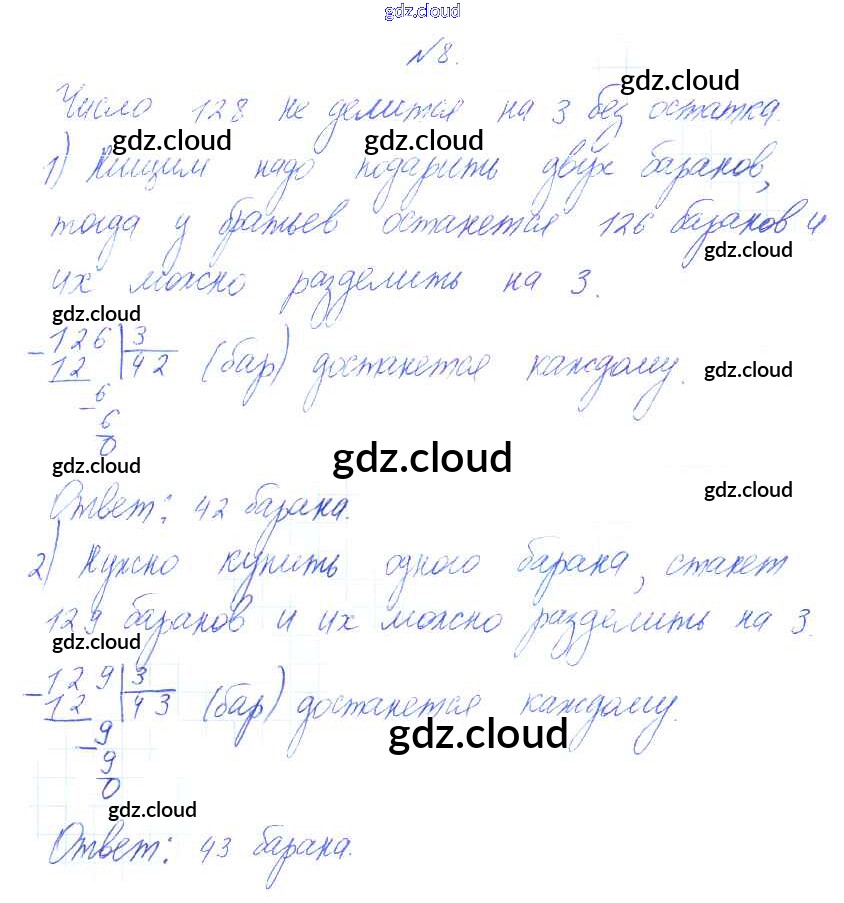 gdz.cloud
№8.
gdz.cloud
Число 128 не делится на 3 без остатка.
gdz.cloud gdz.cloud
1) Нищим надо подарить двух баранов,
тогда у братьев останется 126 баранов и
gdz.cloud
их можно разделить на 3.
gdz.cloud
- 126 | 3
12 | 42 (бар) достанется каждому.
gdz.cloud
- 6
6
0
gdz.cloud
gdz.cloud
gdz.cloud
Ответ: 42 барана.
2) Нужно купить одного барана, станет
129 баранов и их можно разделить на 3.
gdz.cloud
- 129 | 3
12 | 43 (бар) достанется каждому.
gdz.cloud
- 9
9
0
gdz.cloud
Ответ: 43 барана.